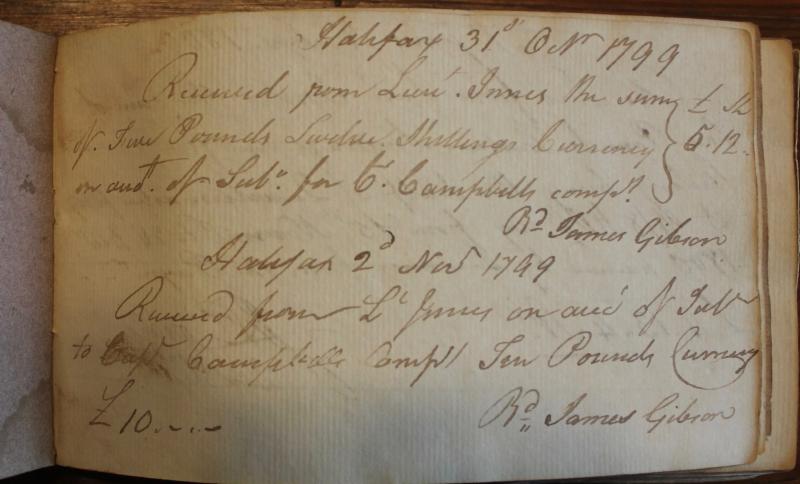 Halifax 31st Octr 1799
Received from Lieut. Innes the sum £ Sh
of Five Pounds Twelve Shillings Currency 5.12.
on acct. of Subs. for Ct. Campbells compy.
Rd James Gibson
Halifax 2d Novr 1799
Received from Lt Innes on acct of Subs
to Capt. Campbells Compy Ten Pounds Currency
£10.-.-
Rd James Gibson